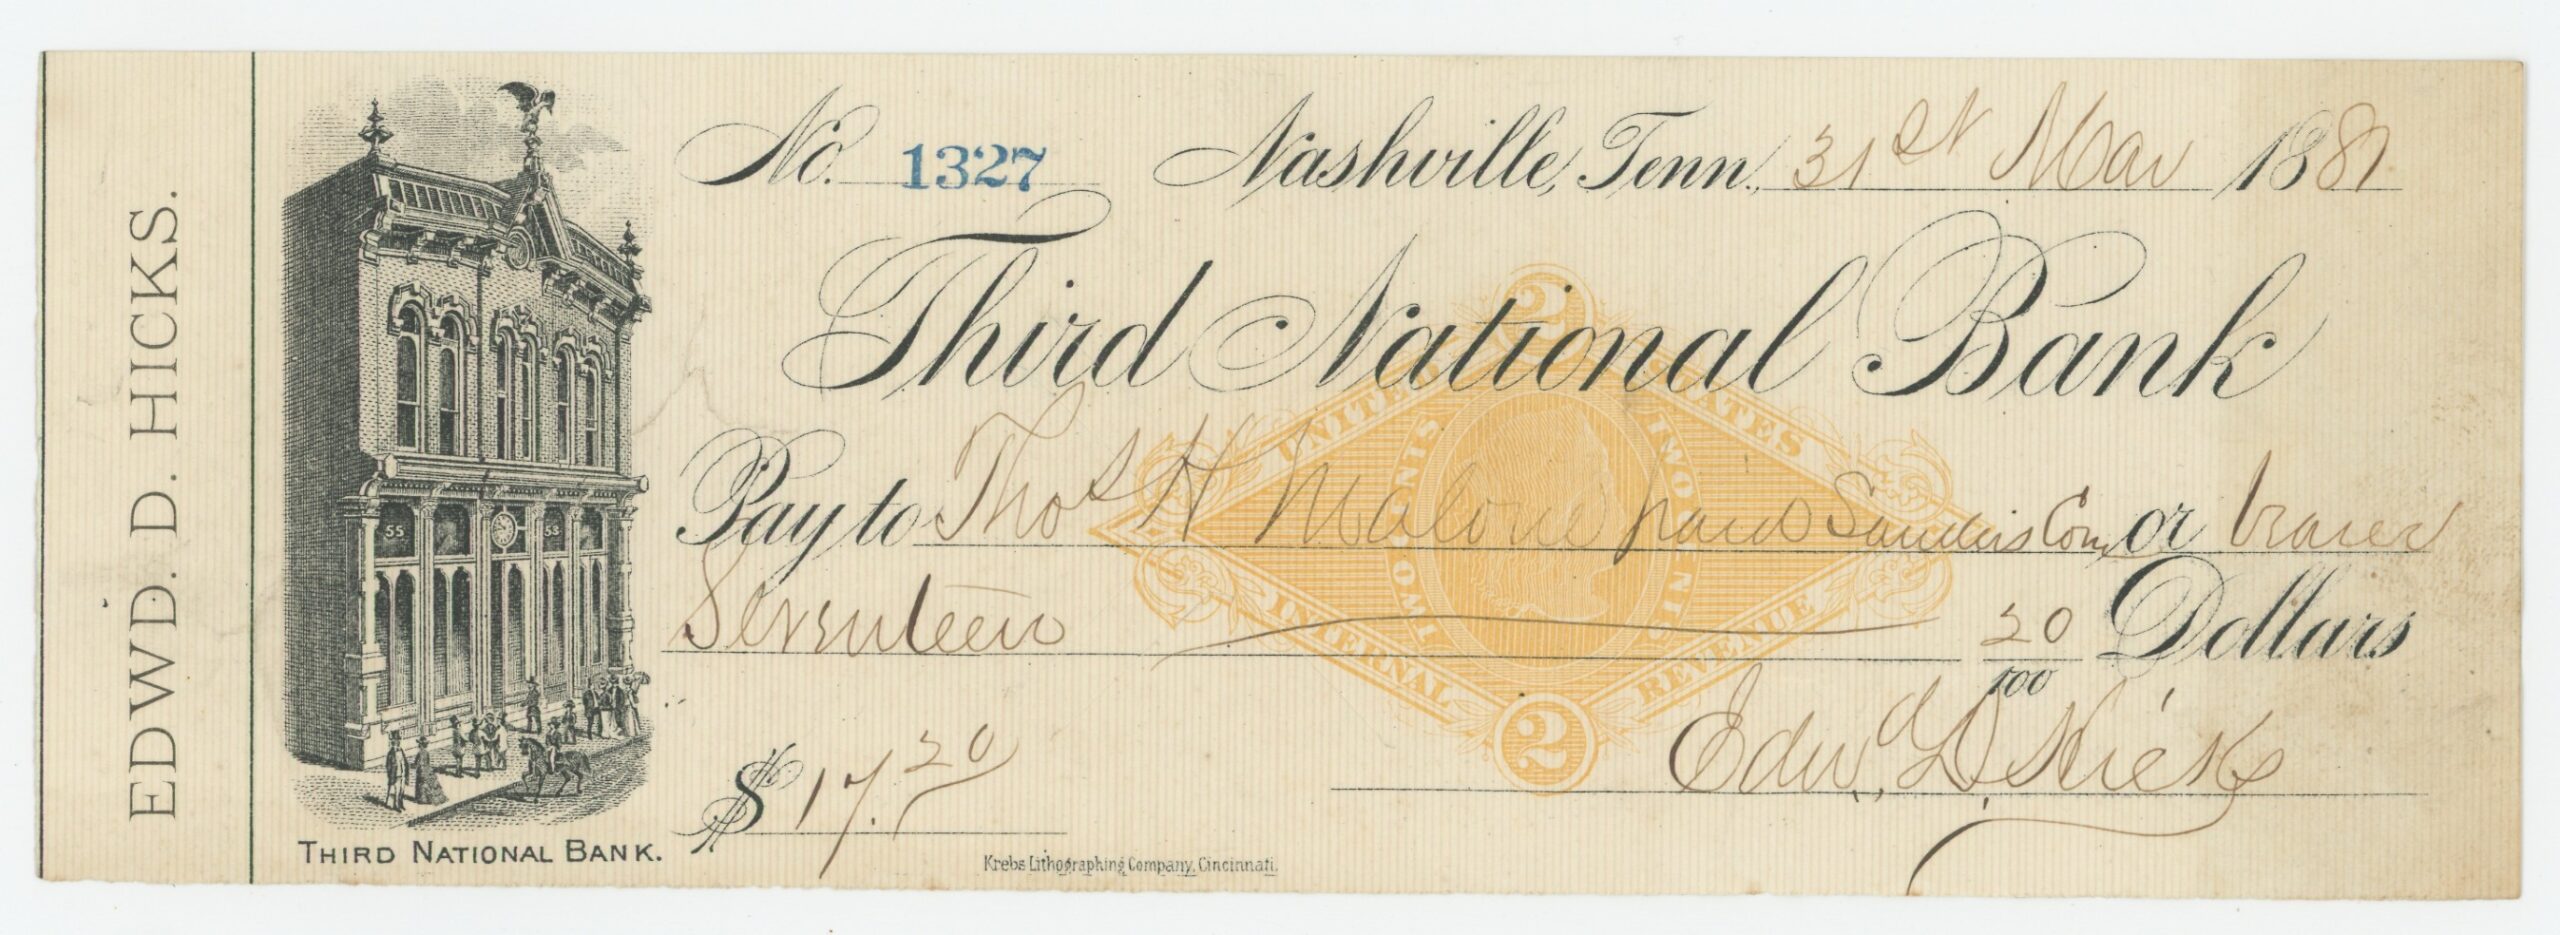 EDWD. D. HICKS.
No. 1327 Nashville, Tenn. 31st Mar 1881
Third National Bank
Pay to Thos H Malone paid Sanders Com, or bearer
Seventeen 20/100 Dollars
$17.20
Edwd. D. Hicks
55 53
THIRD NATIONAL BANK.
Krebs Lithographing Company, Cincinnati.
2
UNITED STATES
TWO CENTS
TWO CENTS
INTERNAL REVENUE
2